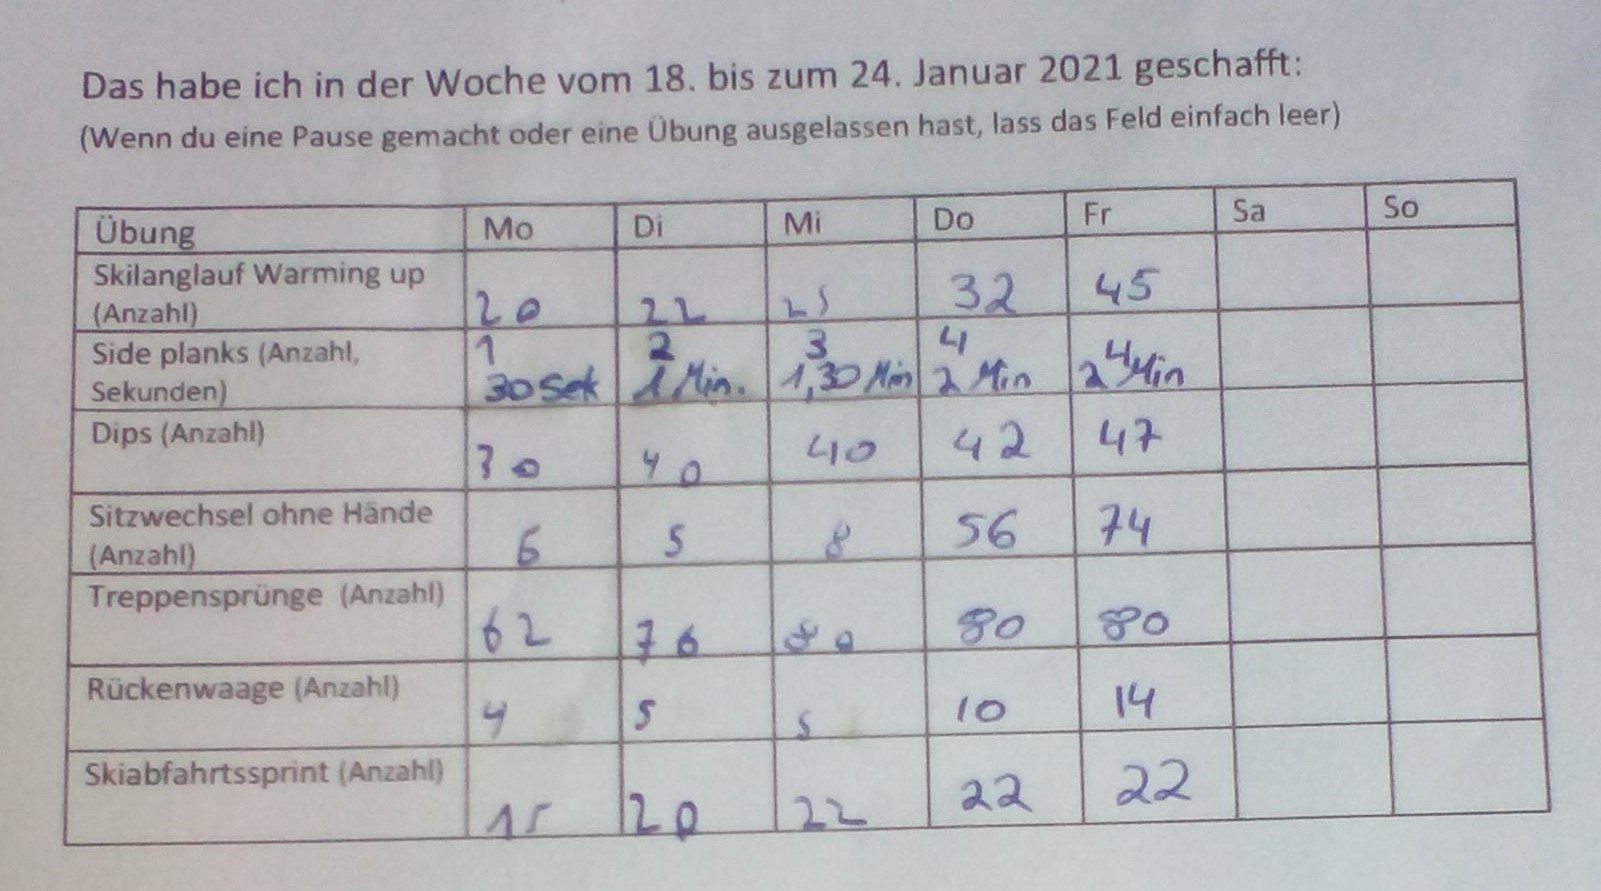 Das habe ich in der Woche vom 18. bis zum 24. Januar 2021 geschafft:
(Wenn du eine Pause gemacht oder eine Übung ausgelassen hast, lass das Feld einfach leer)
Übung Mo Di Mi Do Fr Sa So
Skilanglauf Warming up
(Anzahl) 20 22 25 32 45
Side planks (Anzahl, 1 2 3 4 4
Sekunden) 30 Sek 1 Min. 1,30 Min 2 Min 2 Min
Dips (Anzahl) 30 40 40 42 47
Sitzwechsel ohne Hände
(Anzahl) 6 5 8 56 74
Treppensprünge (Anzahl) 62 76 80 80 80
Rückenwaage (Anzahl) 4 5 5 10 14
Skiabfahrtssprint (Anzahl) 15 20 22 22 22